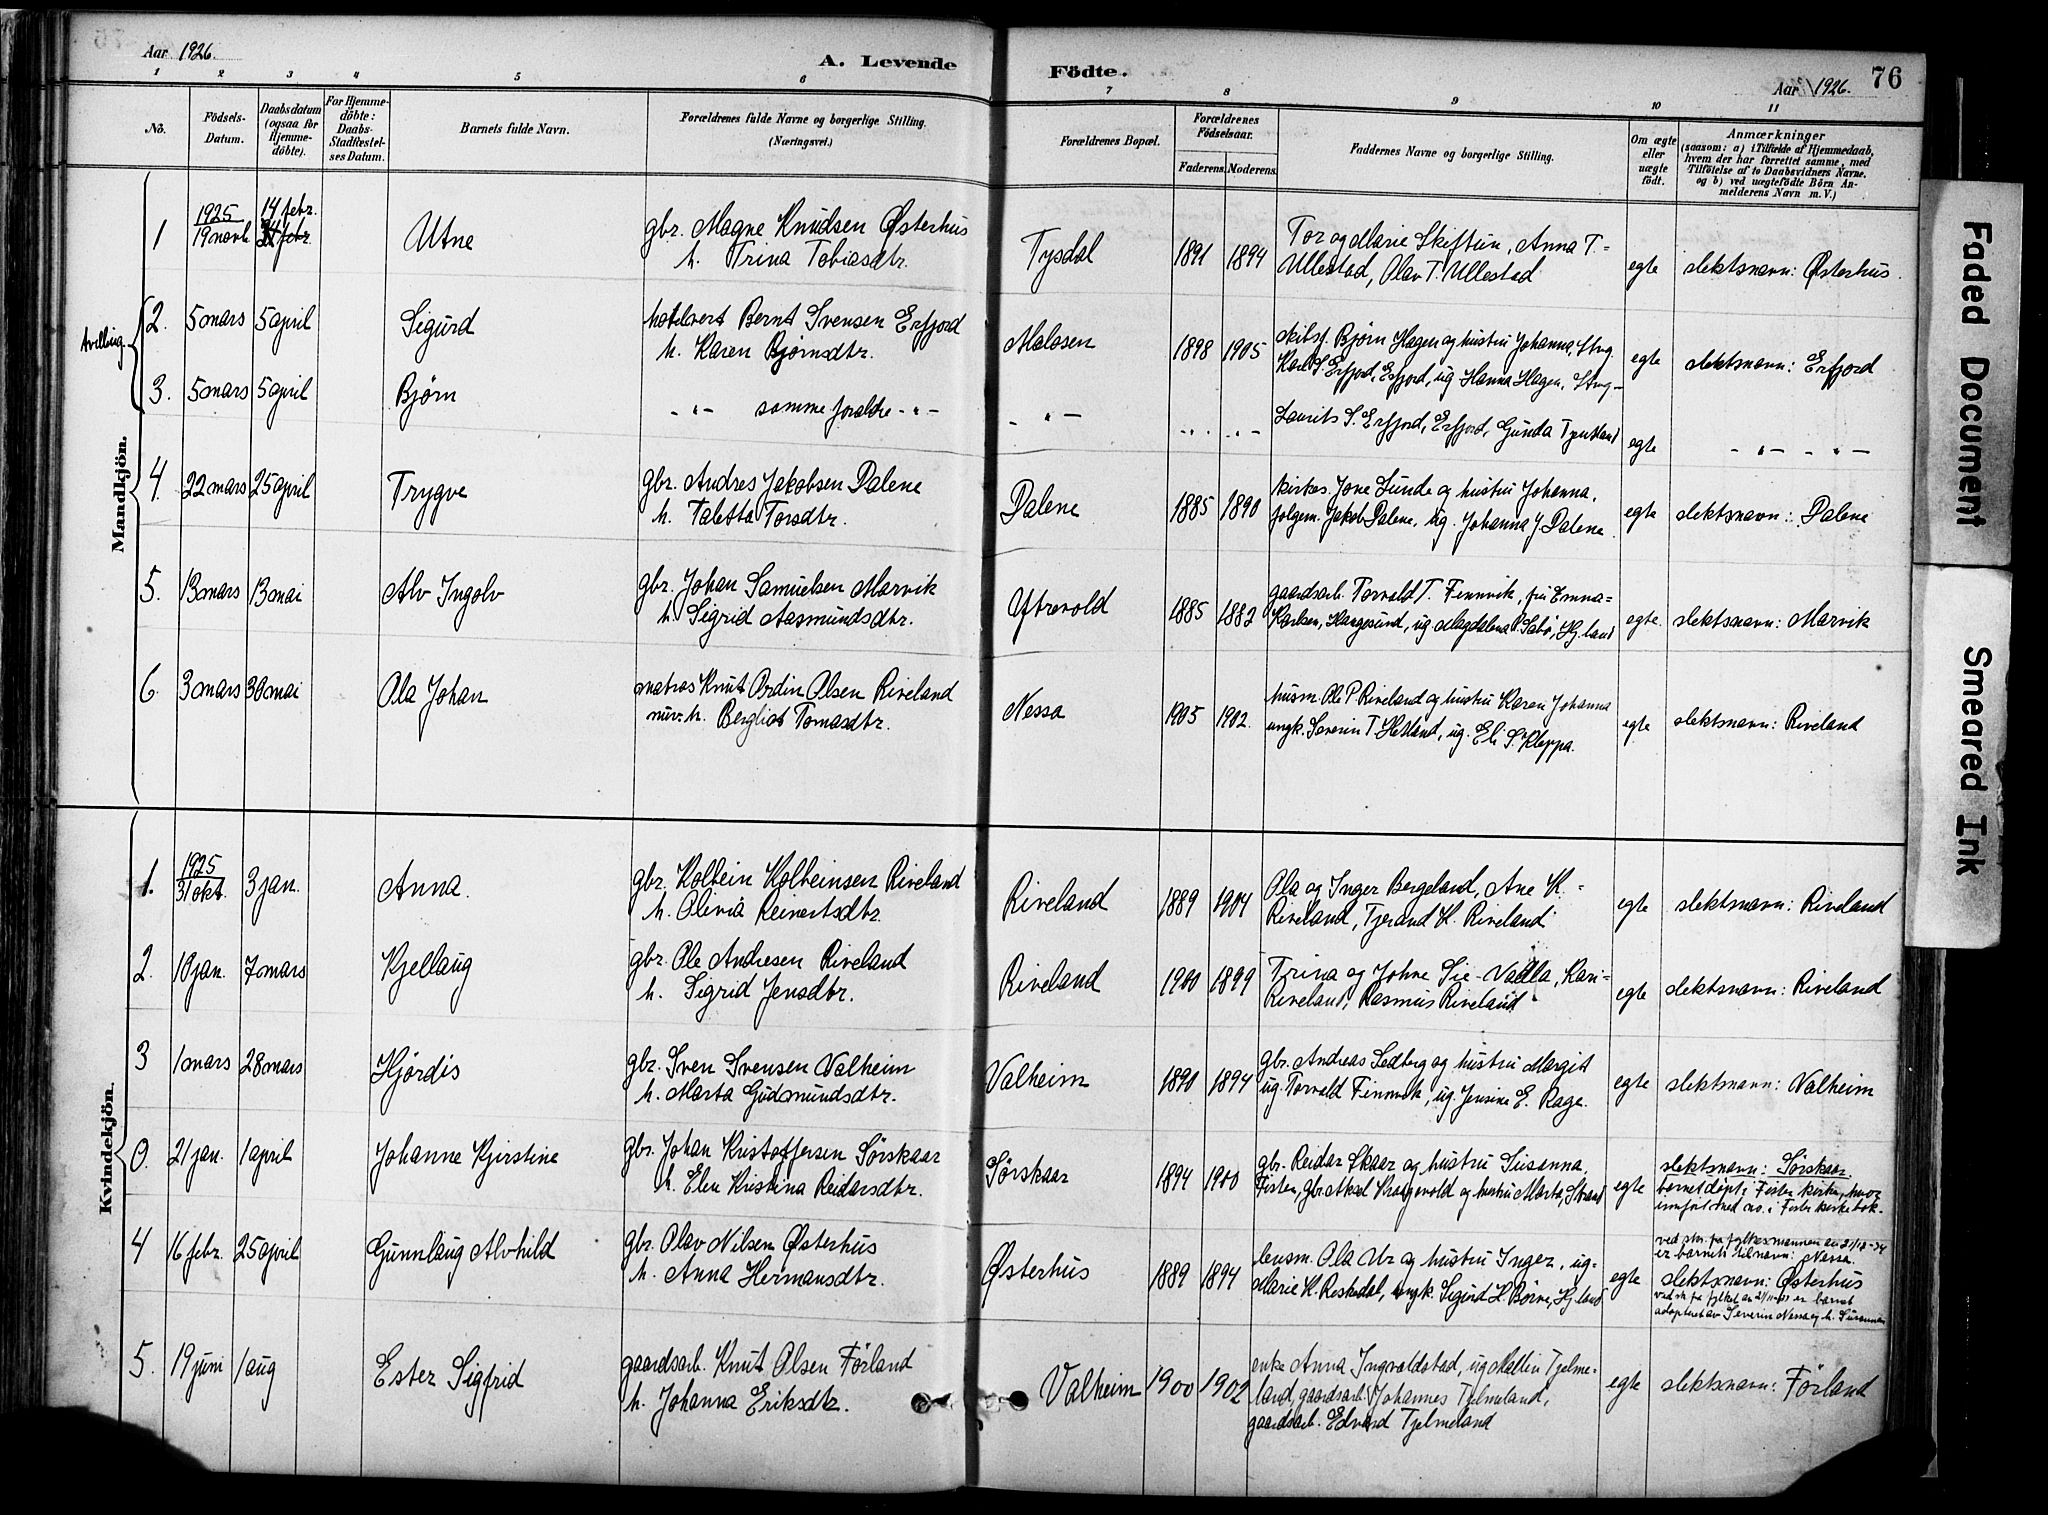 Aar 1926.
A. Levende
Födte.
Aar 1926.
76
1 2 3 4 5 6 7 8 9 10 11
No.
Födsels-Datum.
Daabsdatum (ogsaa for Hjemme-döbte).
For Hjemme-döbte: Daabs-Stadfæstel-ses Datum.
Barnets fulde Navn.
Forældrenes fulde Navne og borgerlige Stilling.
(Næringsvei.)
Forældrenes Bopæl.
Forældrenes Födselsaar.
Faderens. Moderens.
Faddernes Navne og borgerlige Stilling.
Om ægte eller uægte födt.
Anmærkninger
(saasom: a) i Tilfælde af Hjemmedaab,
hvem der har forrettet samme, med
Tilföielse af to Daabsvidners Navne.
og b) ved uægtefödte Börn An-
melderens Navn m. V.)
Mandkjön.
1 1925 19 novb. 14 febr. Utne
gbr. Magne Knudsen Østerhus
h. Trina Tobiasdtr.
Tysdal 1891 1894
Tor og Marie Skiftun, Anna T=
Ullestad, Olav T. Ullestad
egte slektsnavn: Østerhus.
Tvilling.
2. 5 mars 5 april Sigurd
hotelvert Bernt Svensen Erfjord
h. Karen Bjørnsdtr.
1898 1905
skibsf. Bjørn Hagen og hustru Johanna, Stvg.
Karl S. Erfjord, Erfjord, ug Hanna Hagen, Stvg-
egte slektsnavn: Erfjord
3. 5 mars 5 april Bjørn
-"- samme foraldre -"-
- " -
Laurits S. Erfjord, Erfjord, Gunda
egte -"- -"-
4. 22 mars 25 april Trygve
gbr. Andres Jakobsen Dalene
h. Taletta Torsdtr.
Dalene 1885 1890
kirkes. Jone Lunde og hustru Johanna,
folgem. Jakob Dalene, ug. Johanna J Dalene
egte slektsnavn: Dalene
5. 13 mars 13 mai Alv Ingolv
gbr. Johan Samuelsen Marvik
h. Sigrid Aasmundsdtr.
Ytrevold 1885 1882
gaardsarb. Torvald T. Finnvik, fru Emna=
Karlsen, Haugesund, ug Magdalena P Sabø, Hj.land
egte. slektsnavn: Marvik
6. 3 mars 30 mai Ola Johan
matros Knut Ordin Olsen Riveland
h. Bergliot Tomasdtr.
Nessa 1905 1902.
husm. Ole P. Riveland og hustru Karen Johanna
ungk. Severin T. Hetland, ug. Eli S. Kleppa.
egte slektsnavn: Riveland
Kvindekjön.
1. 1925 31 okt. 3 jan. Anna.
gbr. Kolbein Kolbeinsen Riveland
h. Olevia Reinertsdtr.
Riveland 1889 1904
Ola og Inger Bergeland, Ane K.-
Riveland, Tjerand K. Riveland
egte slektsnavn: Riveland
2. 18 jan. 7 mars Kjellaug
gbr. Ole Andresen Riveland
h. Sigrid Jensdtr.
Riveland 1900 1899
Trina og Johne Lie-Vadla, Kari-
Riveland, Rasmus Riveland
egte slektsnavn: Riveland
3 1 mars 28 mars Hjördis
gbr. Sven Svensen Valheim
h. Marta Gudmundsdtr.
Valheim 1890 1894
gbr. Andreas Sedberg og hustru Margit
ug. Torvald Finnvik, ug. Jensine E. Rage.
egte slektsnavn: Valheim
0. 21 jan. 1 april Johanne Kjirstine
gbr. Johan Kristoffersen Sörskaar
h. Elen Kristina Reidarsdtr.
Sörskaar 1894 1900
gbr. Reidar Skaar og hustru Susanna,
Fister, gbr. Aksel Kraagevold og hustru Marta, Strand
egte slektsnavn: Sørskaar
barnet döpt i Fister kirke, hvor
innført med no. i Fister kirkebok.
4 16 febr. 25 april Gunnlaug Alvhild
gbr. Olav Nilsen Østerhus
h. Anna Hermansdtr.
Østerhus 1889 1894
lensm. Ola Ur og hustru Inger, ug-
Marie H. Reskedal, ungk. Sigurd H. Börve, Hj.land
egte
ved skr. fra fylkesmannen av 21/12-34
er barnets tilnavn: Nessa.
slektsnavn: Østerhus
er barnet
adoptert av Severin Nessa og h. Susanna
5. 19 juni 1 aug Ester Sigfrid
gaardsarb. Knut Olsen Förland
h. Johanna Eriksdtr.
Valheim 1900 1902
enke Anna Ingvaldstad, ug Mallin Tjelme-
land, gaardsarb. Johannes Tjelmeland,
gaardsarb. Edvard Tjelmeland
egte slektsnavn: Förland
Faded Document
Smeared Ink